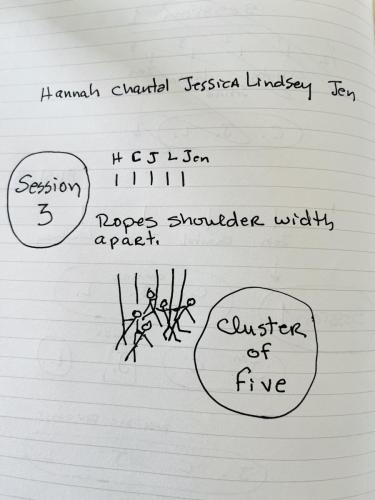 Hannah Chantal Jessica Lindsey Jen
H C J L Jen
Session
3
Ropes shoulder width
apart.
Cluster
of
five